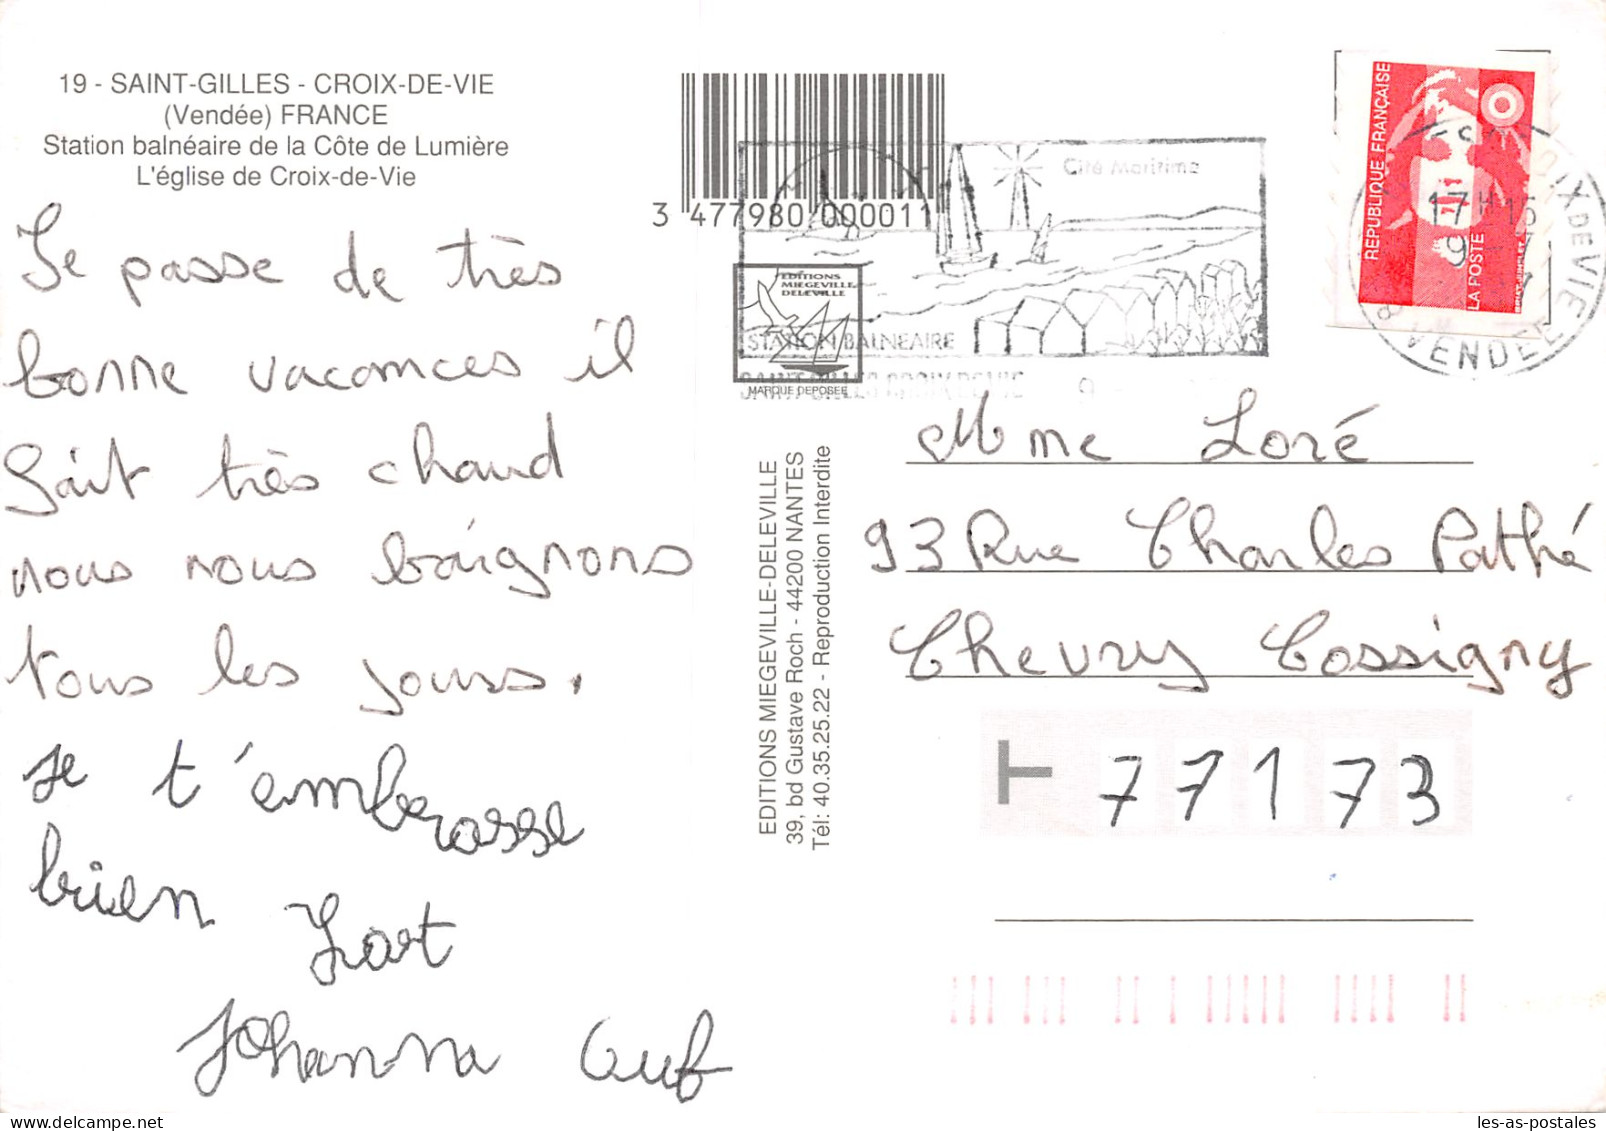 19 - SAINT-GILLES - CROIX-DE-VIE
(Vendée) FRANCE
Station balnéaire de la Côte de Lumière
L'église de Croix-de-Vie
Je passe de très
bonne vacances il
fait très chaud
nous nous baignons
tous les jours.
Je t'embrasse
bien fort
Johanna
3 477980 000011
Cité Maritime
STATION BALNEAIRE
SAINT GILLES CROIX DE VIE 9
EDITIONS
MIEGEVILLE
DELEVILLE
MARQUE DEPOSEE
EDITIONS MIEGEVILLE-DELEVILLE
39, bd Gustave Roch - 44200 NANTES
Tél: 40.35.25.22 - Reproduction Interdite
REPUBLIQUE FRANÇAISE
LA POSTE
17H15
VENDEE
Mme Loré
93 Rue Charles Pathé
Chevry Cossigny
77173
les-as-postales